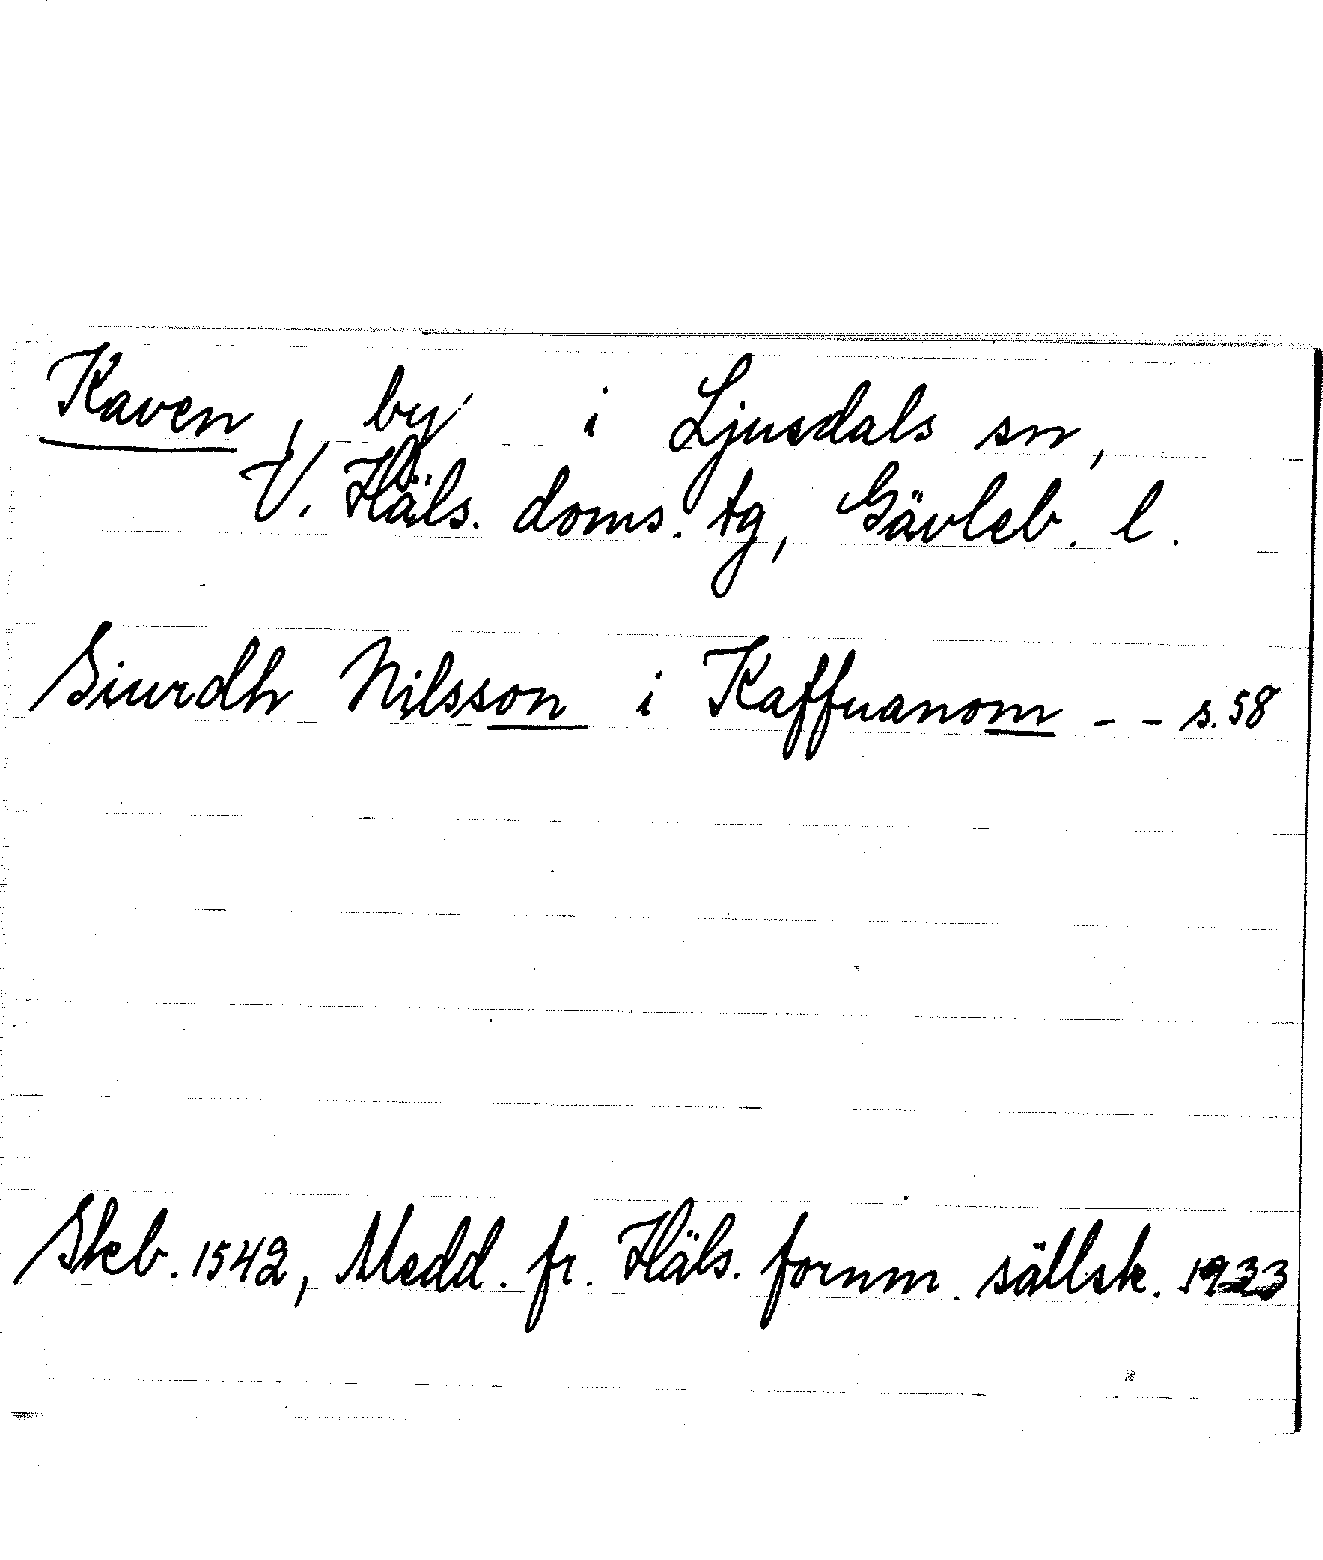 Kaven, by i Ljusdals sn,
V. Häls. doms. tg, Gävleb. l.
Siurdh Nilsson i Kaffuanom - - s. 58
Skb. 1542, Medd. fr. Häls. fornm. sällsk. 1933